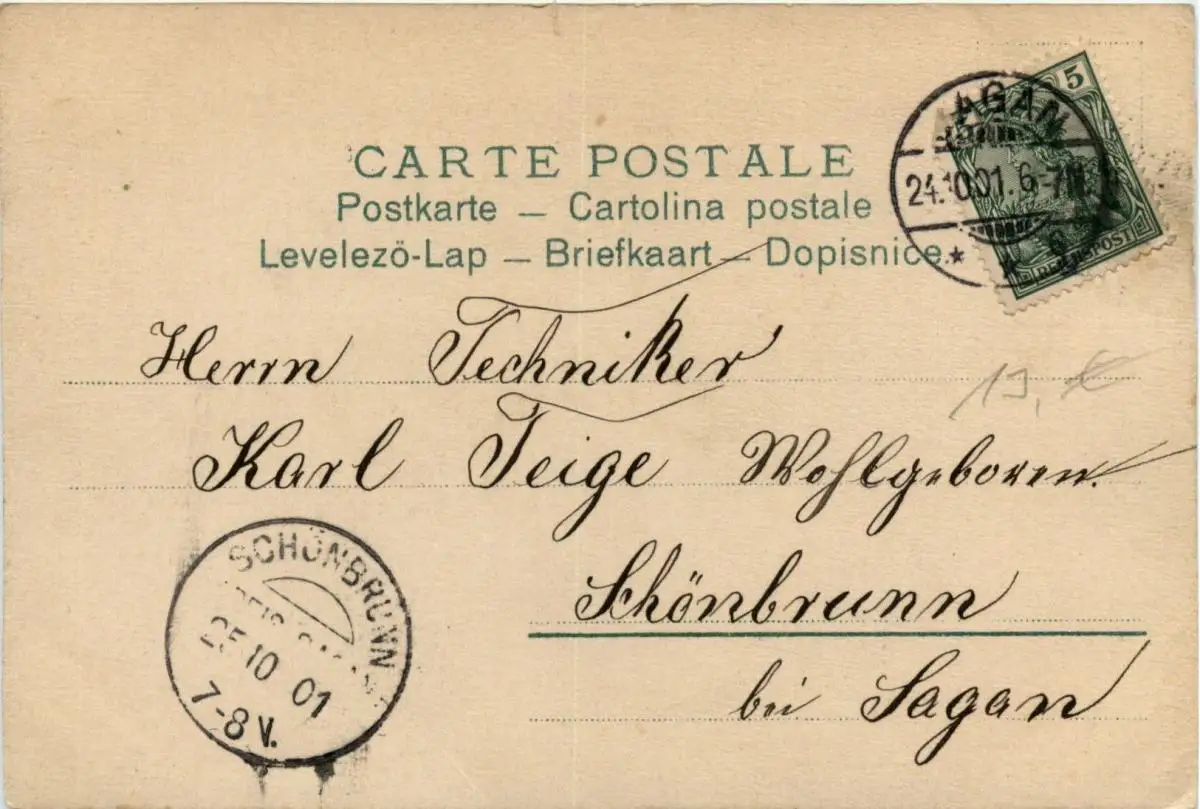 CARTE POSTALE
Postkarte — Cartolina postale
Levelezö-Lap — Briefkaart — Dopisnice.
5
REICHSPOST
AGAN
24.10.01. 6-7N
Herrn Techniker
13, €
Karl Teige Wohlgeboren.
Schönbrunn
bei Sagan
SCHÖNBRUNN
25 10 01
7-8 V.